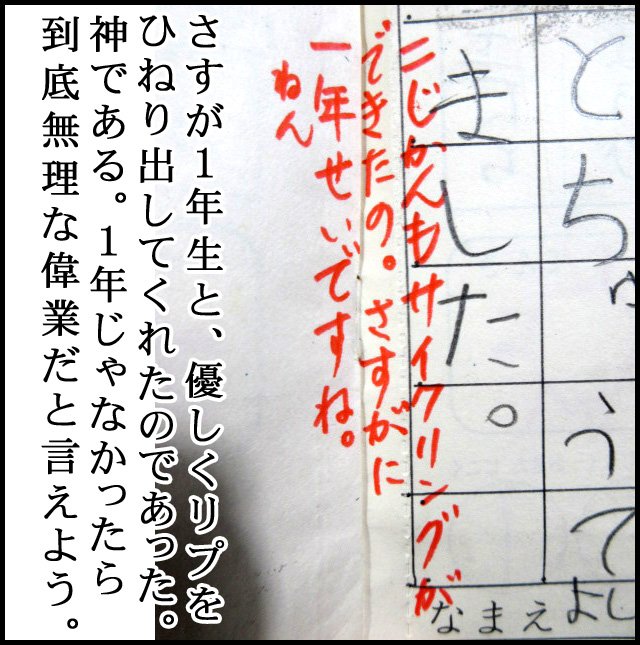 とちゅうで
ました。
二じかんもサイクリングが
できたの。さすがに
一年せいですね。
ねん
なまえ よし
さすが1年生と、優しくリプを
ひねり出してくれたのであった。
神である。1年じゃなかったら
到底無理な偉業だと言えよう。